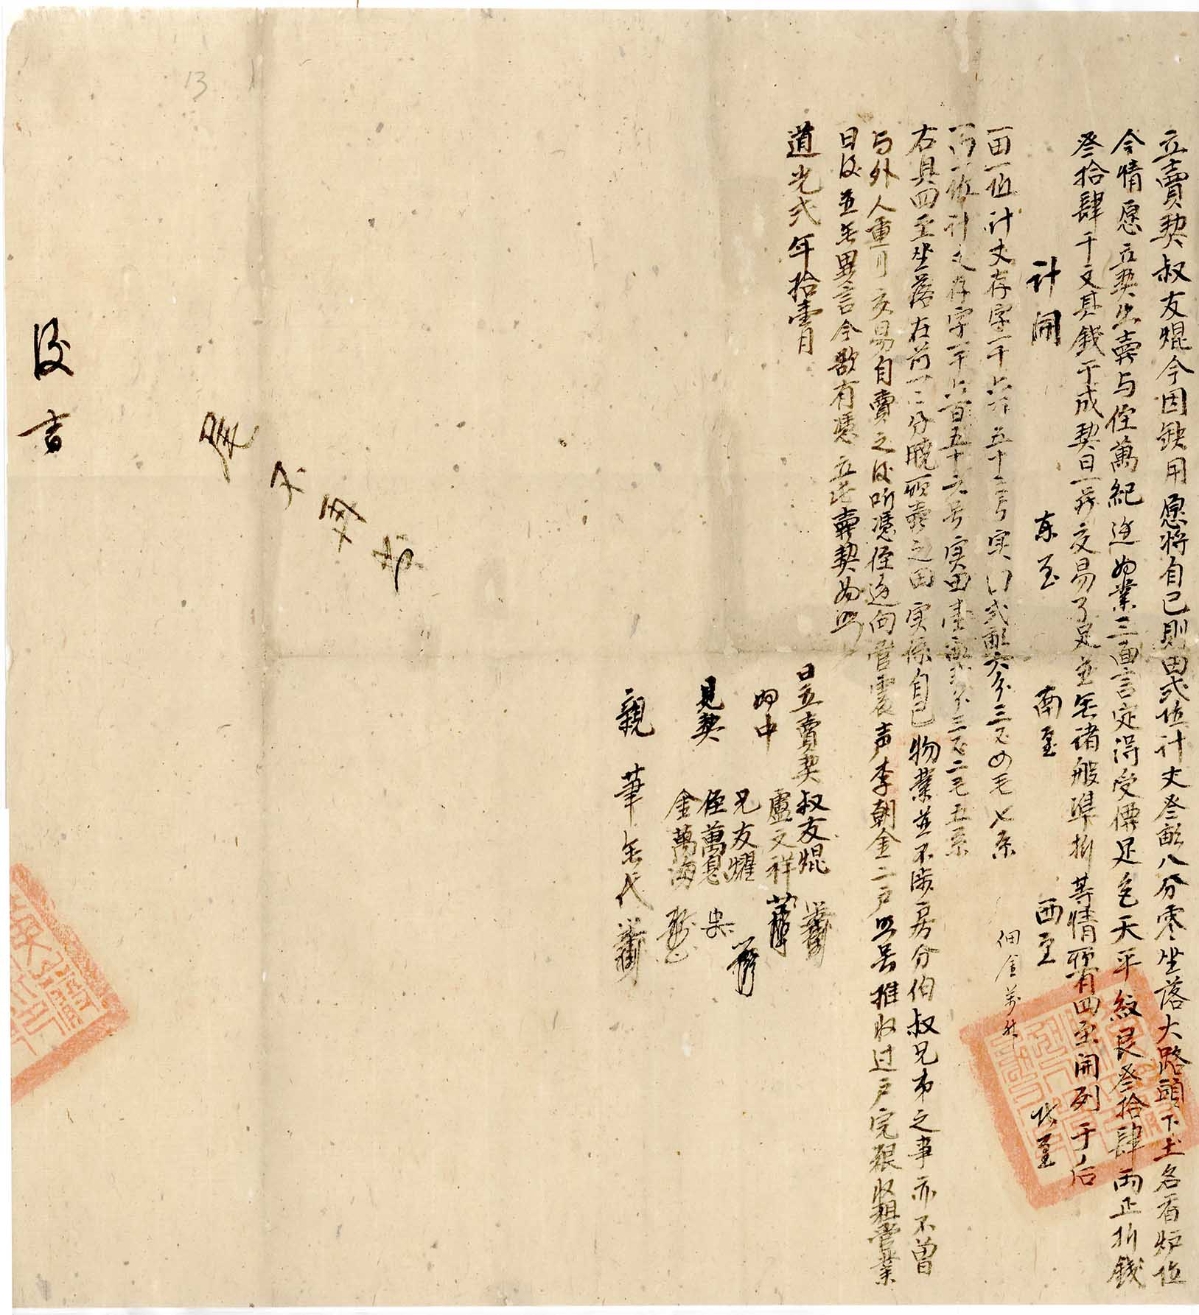 立賣契叔友焜今因缺用愿將自己則田弍坵計丈叁畝八分零坐落大路頭下土名香炉坵
今情愿立契出賣与侄萬紀邊为業三面言定得受價足色天平紋艮叁拾肆両正折錢
叁拾肆千文其錢于成契日一并交易了足並無諸般準折等情所有四至開列于后
計開 东至 南至 西至 北至
一田一坵計丈存字一千六百五十二号实田弍畝六分三厘四毛七糸 佃金萬
一田一坵計丈存字一千六百五十六号实田壹畝弍分三厘二毛五糸
右具四至坐落在前一一分曉所賣之田实係自己物業並不涉房分伯叔兄弟之事亦不曾
与外人重目交易自賣之後听憑侄边向管裏声李朝金二户照号推收过户完粮收租管業
日後並無異言今欲有憑立此賣契为照
道光弍年拾壹月 日立賣契叔友焜
为中 盧文祥
兄友耀
見契 侄萬息
金萬海
親筆無代
是不再書
後吉
13